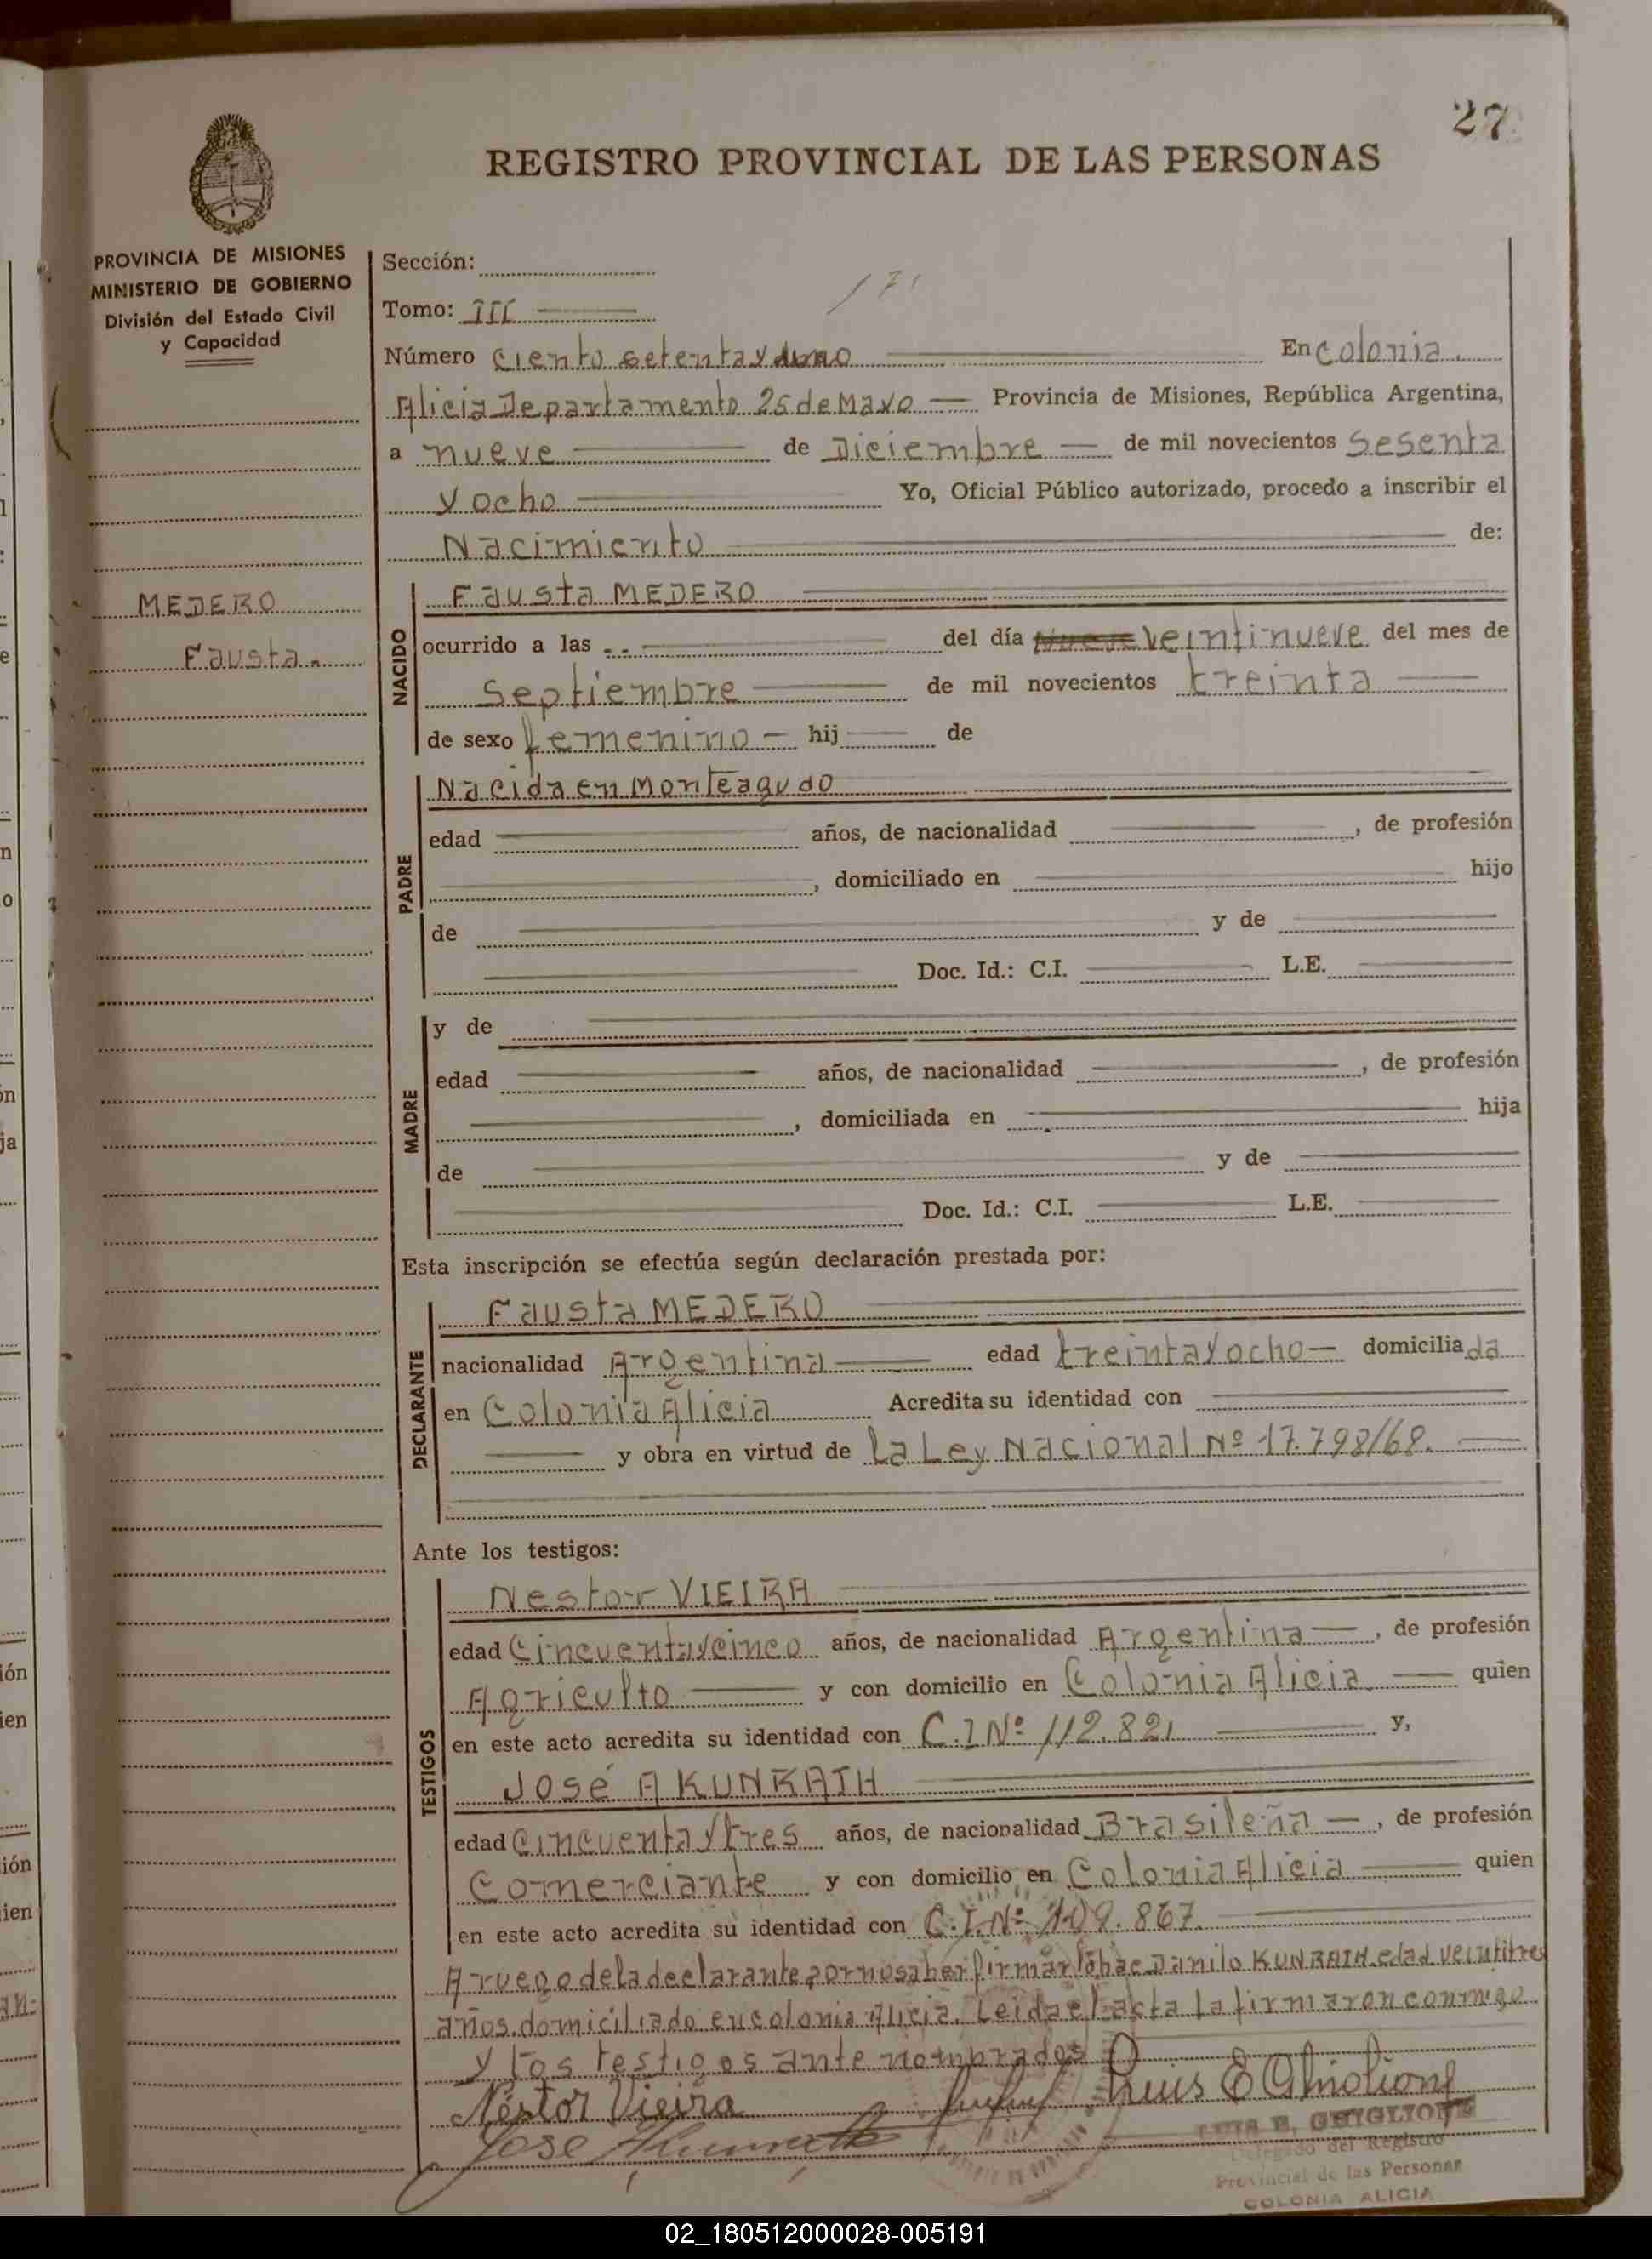 27
REGISTRO PROVINCIAL DE LAS PERSONAS
PROVINCIA DE MISIONES
MINISTERIO DE GOBIERNO
División del Estado Civil
y Capacidad
Sección:
Tomo: III
171
Número Ciento setenta y uno En Colonia
Alicia Departamento 25 de Mayo Provincia de Misiones, República Argentina,
a nueve de Diciembre de mil novecientos Sesenta
y ocho Yo, Oficial Público autorizado, procedo a inscribir el
Nacimiento de:
MEDERO
Fausta
NACIDO
Fausta MEDERO
ocurrido a las del día veintinueve del mes de
Septiembre de mil novecientos treinta
de sexo femenino hij de
PADRE
Nacida en Monteagudo
edad años, de nacionalidad , de profesión
, domiciliado en hijo
de y de
Doc. Id.: C.I. L.E.
MADRE
y de
edad años, de nacionalidad , de profesión
, domiciliada en hija
de y de
Doc. Id.: C.I. L.E.
Esta inscripción se efectúa según declaración prestada por:
DECLARANTE
Fausta MEDERO
nacionalidad Argentina edad treinta y ocho domiciliada
en Colonia Alicia Acredita su identidad con
y obra en virtud de La Ley Nacional Nº 17.798/68.
Ante los testigos:
TESTIGOS
Nestor VIEIRA
edad Cincuenta y cinco años, de nacionalidad Argentina , de profesión
Agriculto y con domicilio en Colonia Alicia. quien
en este acto acredita su identidad con C.I Nº 112.821 y,
José A KUNRATH
edad Cincuenta y tres años, de nacionalidad Brasileña , de profesión
Comerciante y con domicilio en Colonia Alicia quien
en este acto acredita su identidad con C.I. Nº 109.867.
A ruego de la declarante por no saber firmar lo hac Danilo KUNRATH edad veintitres
años. domiciliado en colonia Alicia. Leida el acta la firmaron conmigo
y los testigos ante nombrados
Néstor Vieira Luis E Ghiglione
José Kunrath
LUIS E. GHIGLIONE
Delegado del Registro
Provincial de las Personas
COLONIA ALICIA
02_180512000028-005191